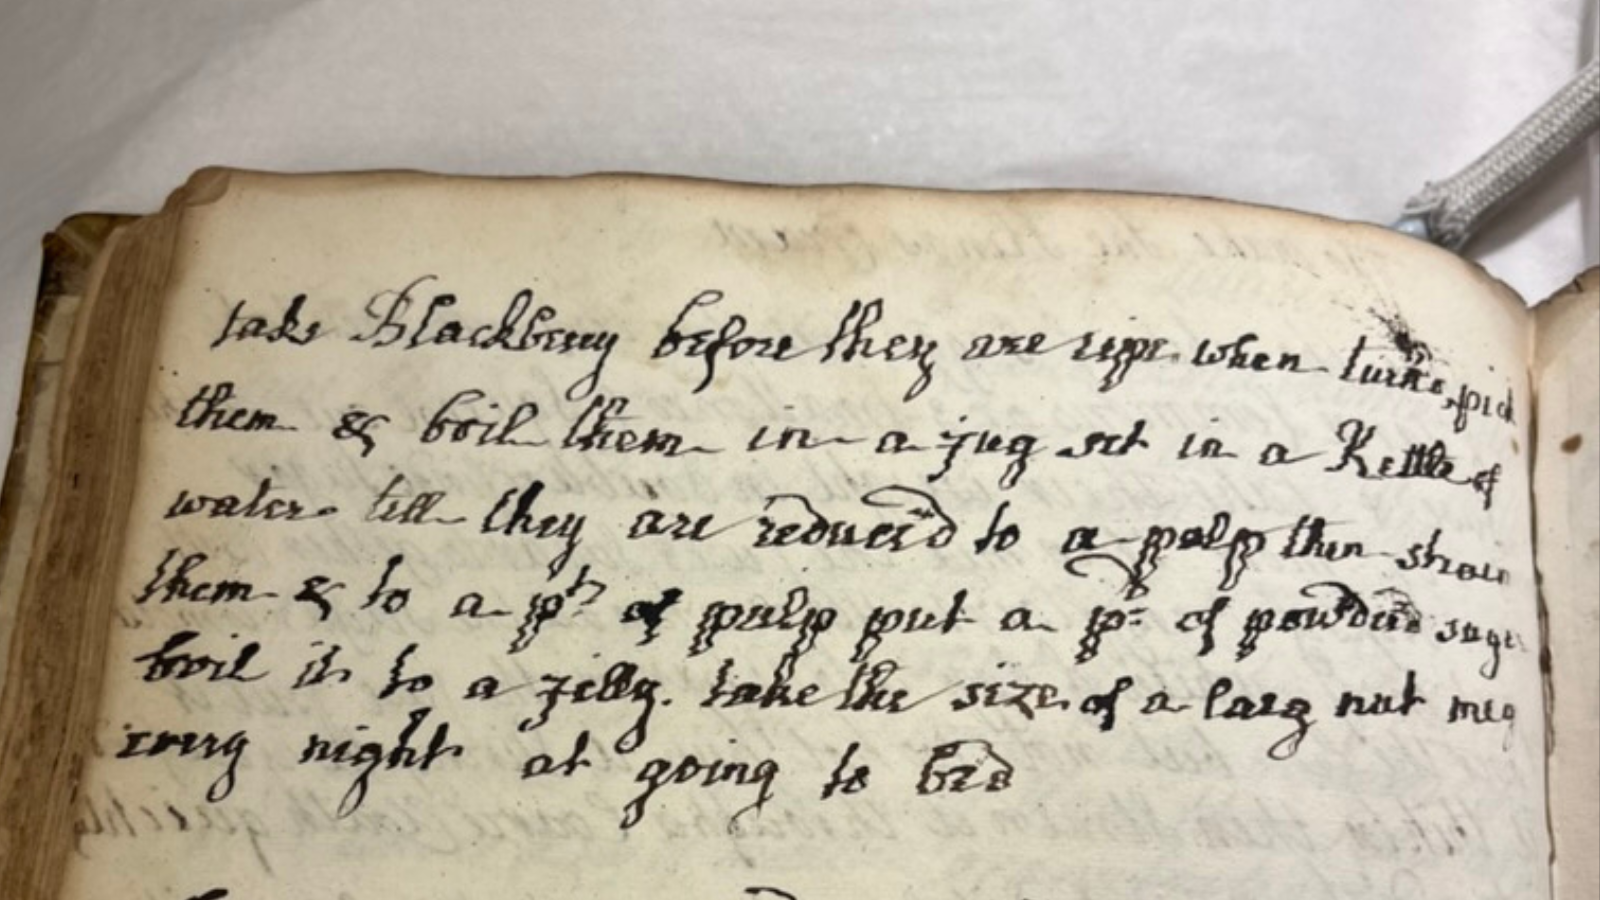 take Blackberry before they are ripe when turn'd pick
them & boil them in a jug set in a Kettle of
water till they are reduced to a pulp then strain
them & to a pt of pulp put a pd of powder'd suger
boil it to a jelly. take the size of a larg nut meg
every night at going to bed